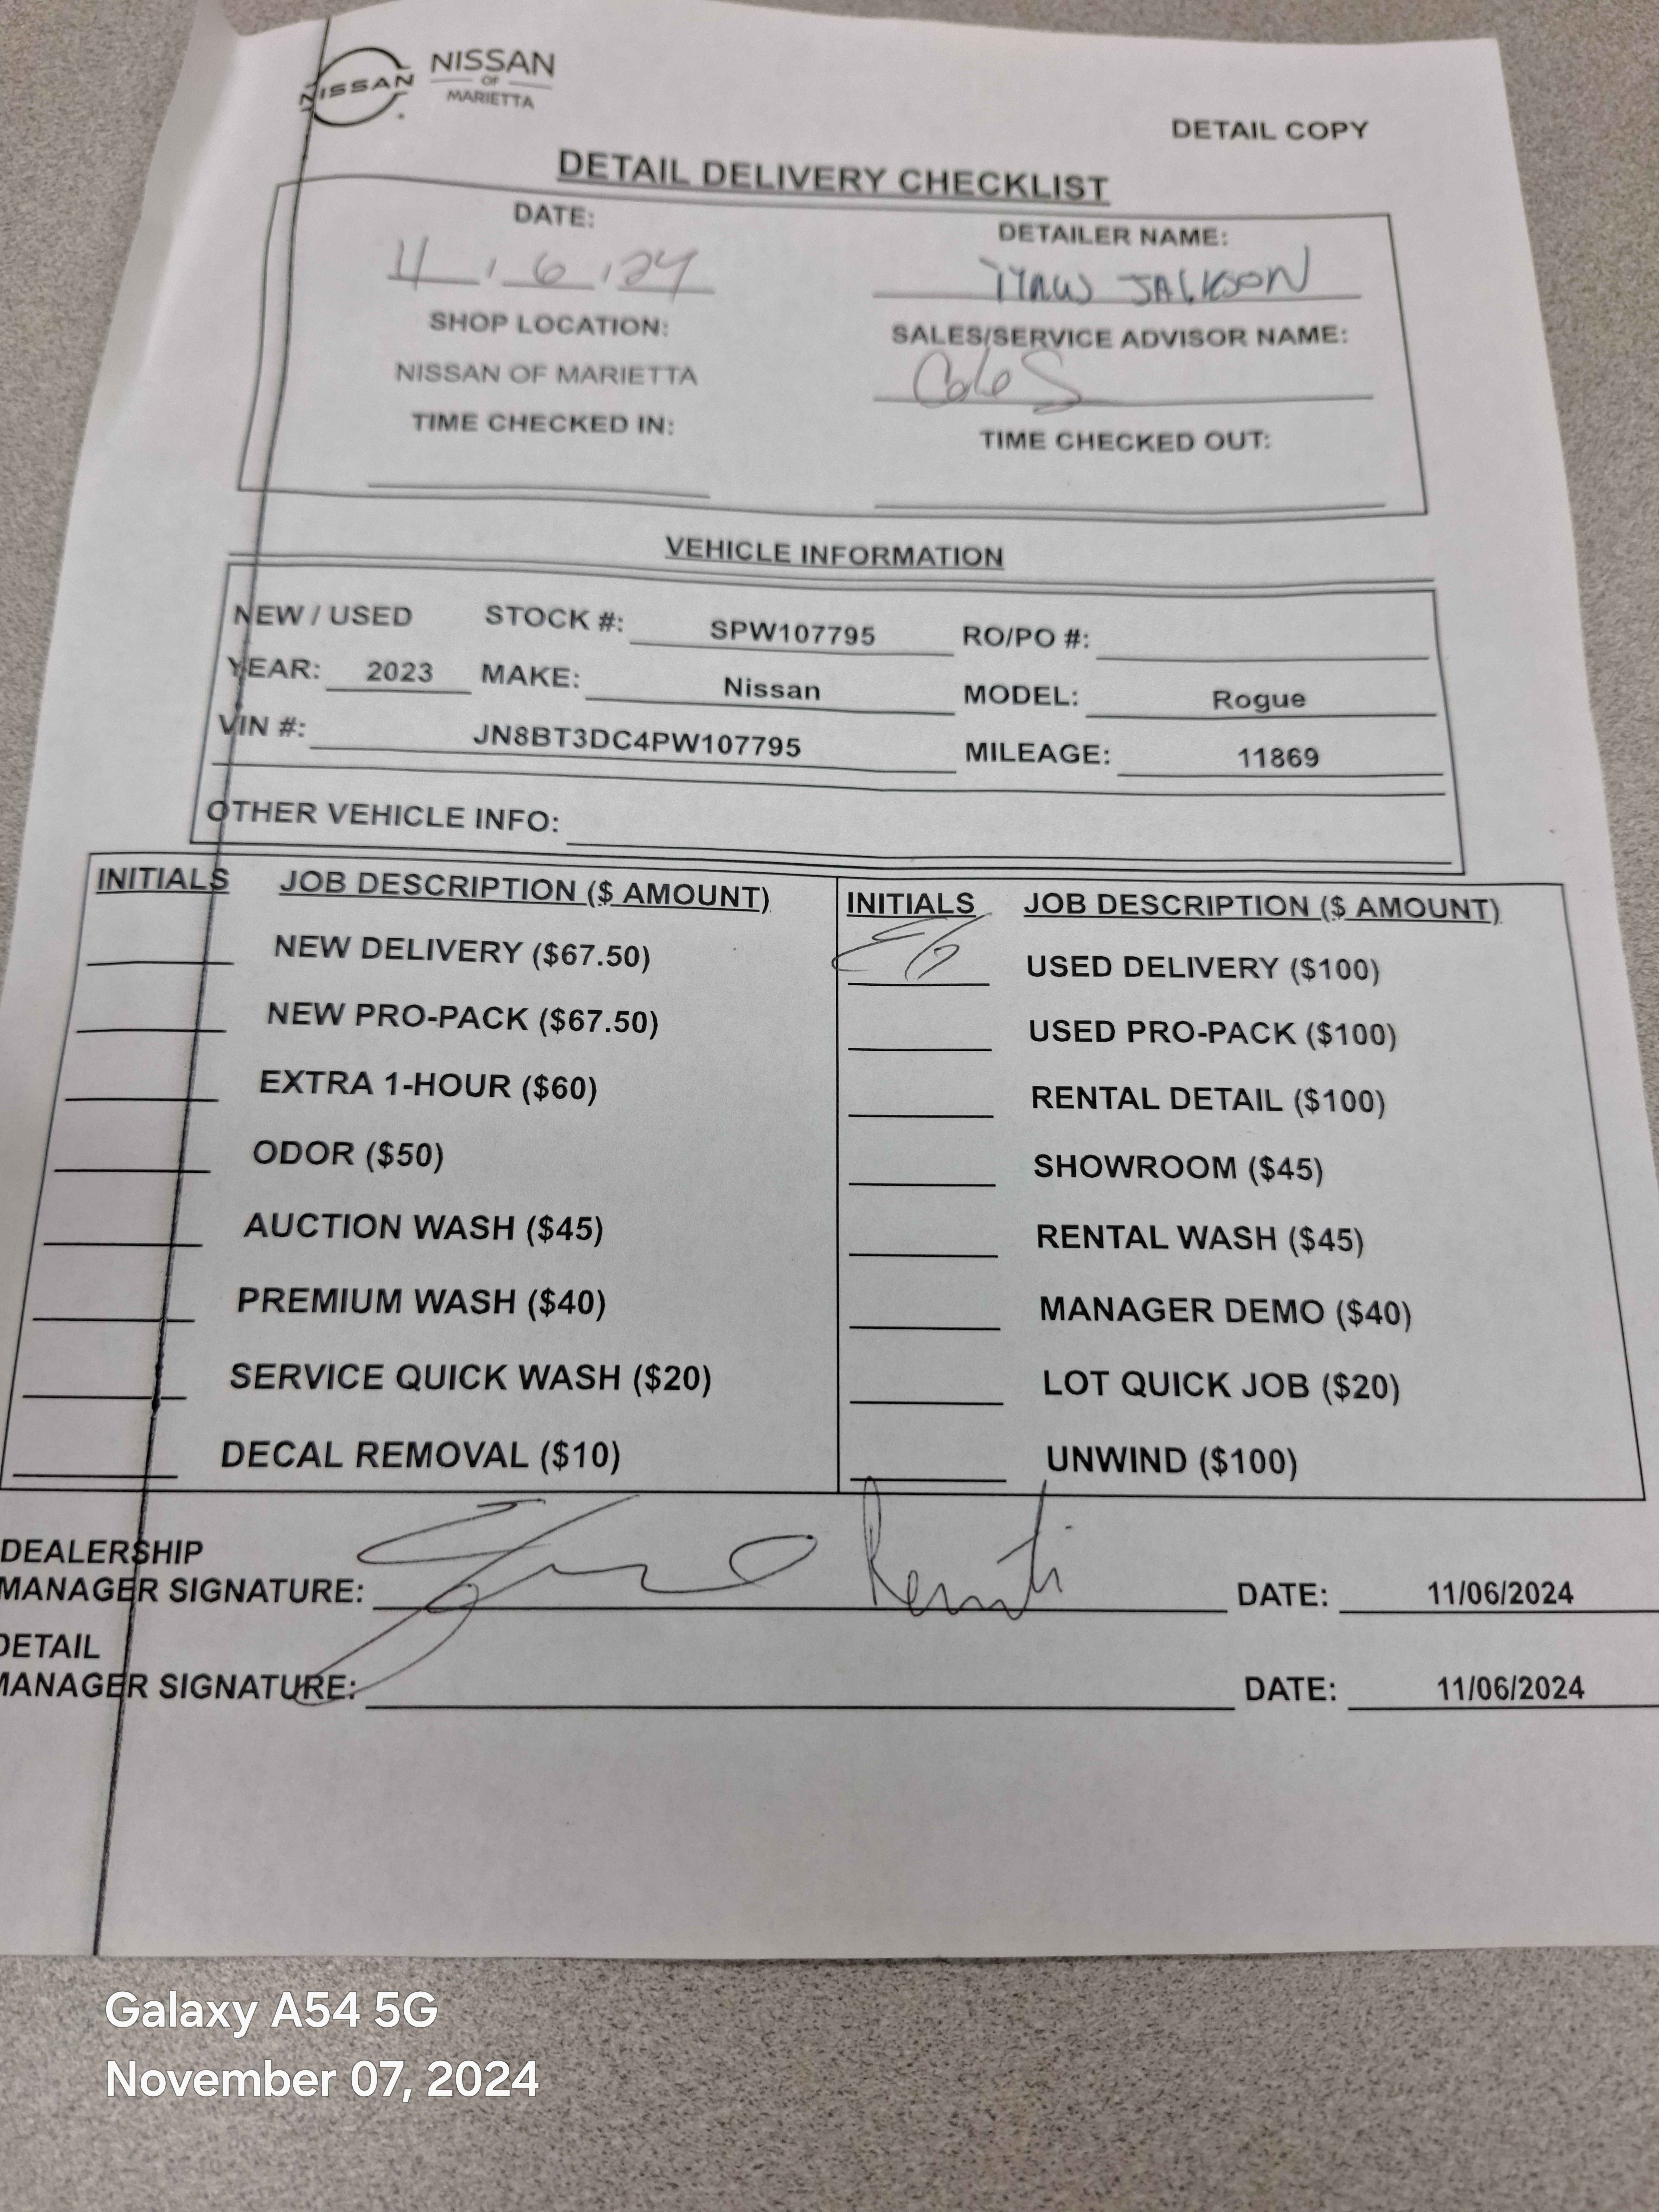 NISSAN
NISSAN
OF
MARIETTA
DETAIL COPY
DETAIL DELIVERY CHECKLIST
DATE:
11 / 6 / 24
DETAILER NAME:
JACKSON
SHOP LOCATION:
NISSAN OF MARIETTA
SALES/SERVICE ADVISOR NAME:
Cole S
TIME CHECKED IN:
TIME CHECKED OUT:
VEHICLE INFORMATION
NEW / USED STOCK #: SPW107795 RO/PO #:
YEAR: 2023 MAKE: Nissan MODEL: Rogue
VIN #: JN8BT3DC4PW107795 MILEAGE: 11869
OTHER VEHICLE INFO:
INITIALS JOB DESCRIPTION ($ AMOUNT)
NEW DELIVERY ($67.50)
NEW PRO-PACK ($67.50)
EXTRA 1-HOUR ($60)
ODOR ($50)
AUCTION WASH ($45)
PREMIUM WASH ($40)
SERVICE QUICK WASH ($20)
DECAL REMOVAL ($10)
INITIALS JOB DESCRIPTION ($ AMOUNT)
USED DELIVERY ($100)
USED PRO-PACK ($100)
RENTAL DETAIL ($100)
SHOWROOM ($45)
RENTAL WASH ($45)
MANAGER DEMO ($40)
LOT QUICK JOB ($20)
UNWIND ($100)
DEALERSHIP
MANAGER SIGNATURE: DATE: 11/06/2024
DETAIL
MANAGER SIGNATURE: DATE: 11/06/2024
Galaxy A54 5G
November 07, 2024